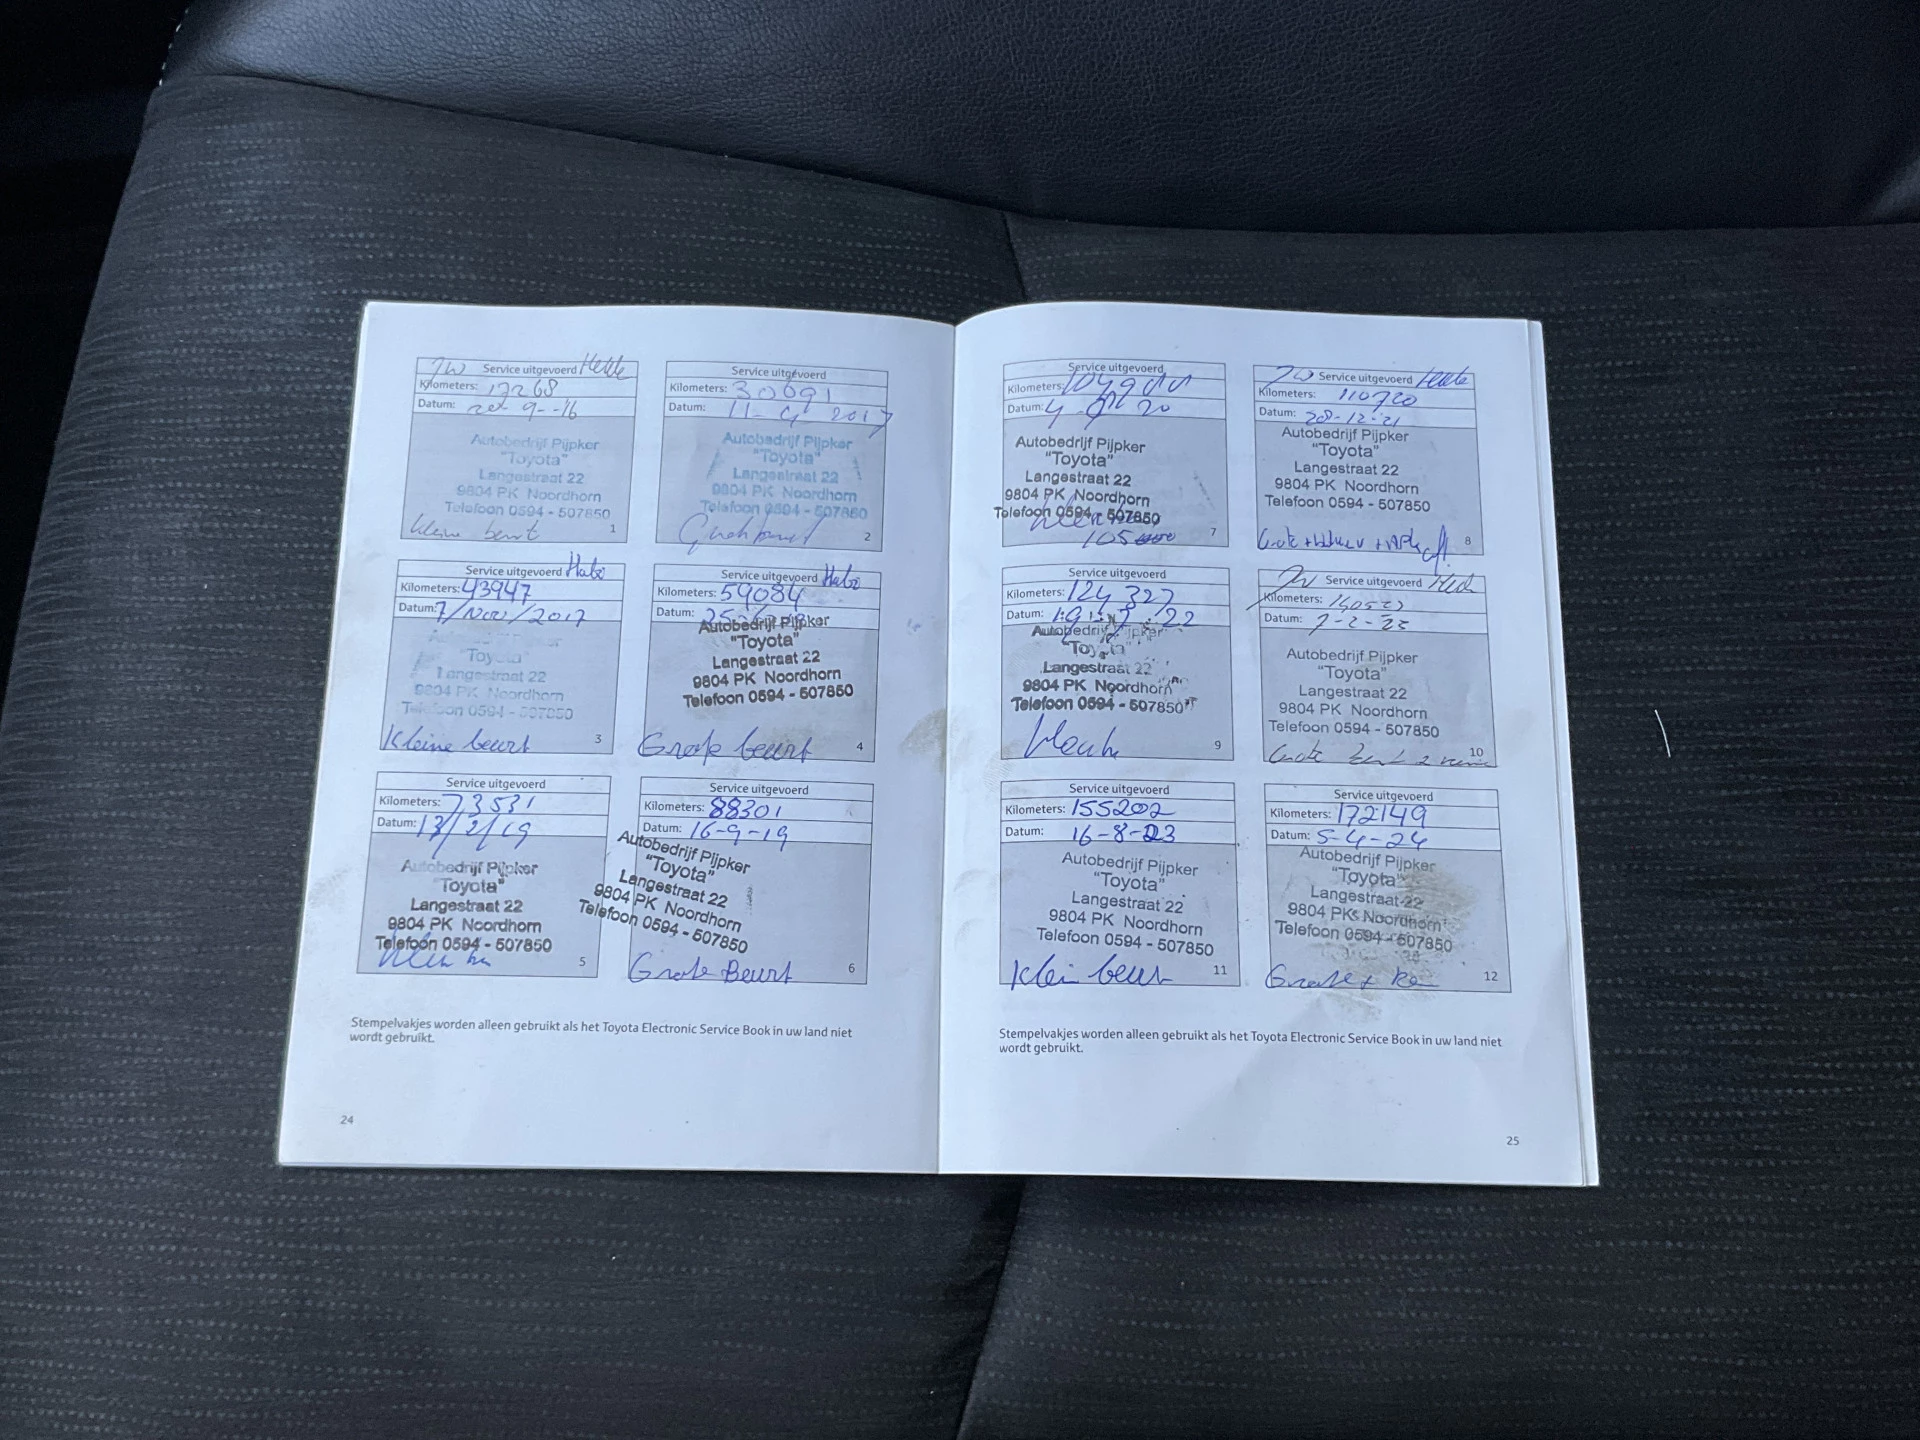 Service uitgevoerd
Kilometers: 17268
Datum: 9-16
Autobedrijf Pijpker
"Toyota"
Langestraat 22
9804 PK Noordhorn
Telefoon 0594 - 507850
kleine beurt
1
Service uitgevoerd
Kilometers: 30691
Datum: 11-4 2017
Autobedrijf Pijpker
"Toyota"
Langestraat 22
9804 PK Noordhorn
Telefoon 0594 - 507850
2
Service uitgevoerd
Kilometers: 43947
Datum: 7/Nov/2017
"Toyota"
Langestraat 22
9804 PK Noordhorn
Telefoon 0594 - 507850
Kleine beurt
3
Service uitgevoerd
Kilometers: 59084
Datum:
Autobedrijf Pijpker
"Toyota"
Langestraat 22
9804 PK Noordhorn
Telefoon 0594 - 507850
Grote beurt
4
Service uitgevoerd
Kilometers: 73531
Datum: 13/2/19
Autobedrijf Pijpker
"Toyota"
Langestraat 22
9804 PK Noordhorn
Telefoon 0594 - 507850
5
Service uitgevoerd
Kilometers: 88301
Datum: 16-9-19
Autobedrijf Pijpker
"Toyota"
Langestraat 22
9804 PK Noordhorn
Telefoon 0594 - 507850
Grote Beurt
6
Stempelvakjes worden alleen gebruikt als het Toyota Electronic Service Book in uw land niet
wordt gebruikt.
24
Service uitgevoerd
Kilometers:
Datum: 20
Autobedrijf Pijpker
"Toyota"
Langestraat 22
9804 PK Noordhorn
Telefoon 0594 - 507850
7
Service uitgevoerd
Kilometers: 110720
Datum: 20-12-21
Autobedrijf Pijpker
"Toyota"
Langestraat 22
9804 PK Noordhorn
Telefoon 0594 - 507850
8
Service uitgevoerd
Kilometers: 124327
Datum: 22
Autobedrijf Pijpker
"Toyota"
Langestraat 22
9804 PK Noordhorn
Telefoon 0594 - 507850
9
Service uitgevoerd
Kilometers:
Datum: 7-2-23
Autobedrijf Pijpker
"Toyota"
Langestraat 22
9804 PK Noordhorn
Telefoon 0594 - 507850
10
Service uitgevoerd
Kilometers: 155202
Datum: 16-8-23
Autobedrijf Pijpker
"Toyota"
Langestraat 22
9804 PK Noordhorn
Telefoon 0594 - 507850
Klein beurt
11
Service uitgevoerd
Kilometers: 172149
Datum: 5-4-24
Autobedrijf Pijpker
"Toyota"
Langestraat 22
9804 PK Noordhorn
Telefoon 0594 - 507850
12
Stempelvakjes worden alleen gebruikt als het Toyota Electronic Service Book in uw land niet
wordt gebruikt.
25